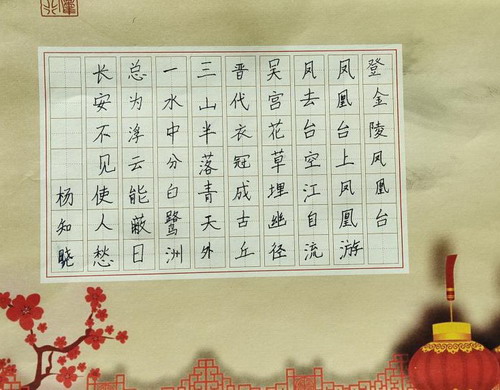 登金陵凤凰台
凤凰台上凤凰游
凤去台空江自流
吴宫花草埋幽径
晋代衣冠成古丘
三山半落青天外
一水中分白鹭洲
总为浮云能蔽日
长安不见使人愁
杨知晓